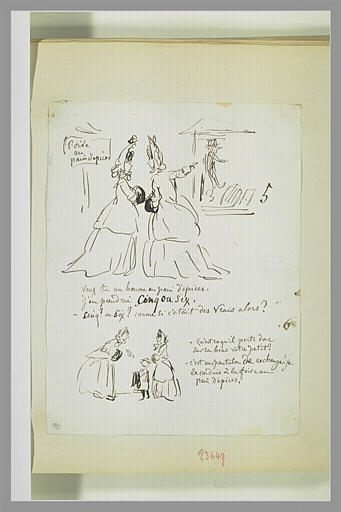 foire
au
pain d'épices
5
Veux tu un homme en pain d'épices.
j'en prendrai Cinq ou Six.
- Cinq ou Six? comme si c'était des vrais alors?
- qu'est ce qu'il porte donc
sur le bras votre petit?
- c'est un pantalon de rechange je
le conduis à la foire au
pain d'épices.
23649